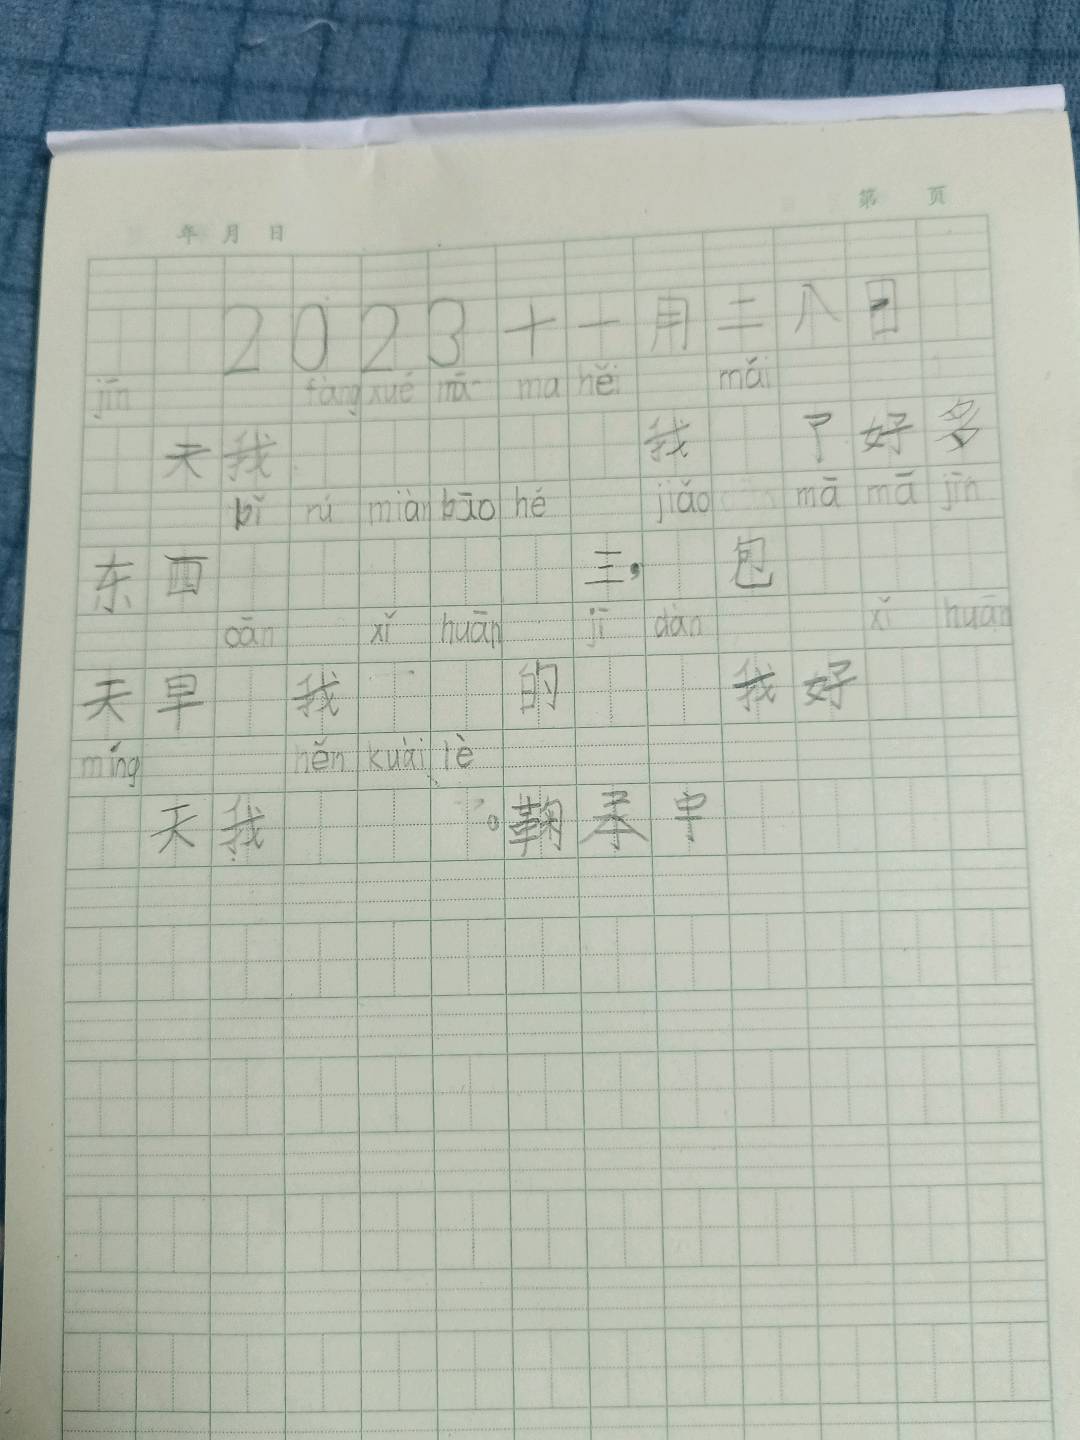 第 页
年 月 日
2023十一月二八日
jīn fàng xué mā ma hěi mǎi
天我 我 了好多
bǐ rú miàn bāo hé jiǎo mā mā jīn
东西 三, 包
cān xǐ huān jī dàn xǐ huān
天早 我 的 我好
míng hěn kuài lè
天我 。